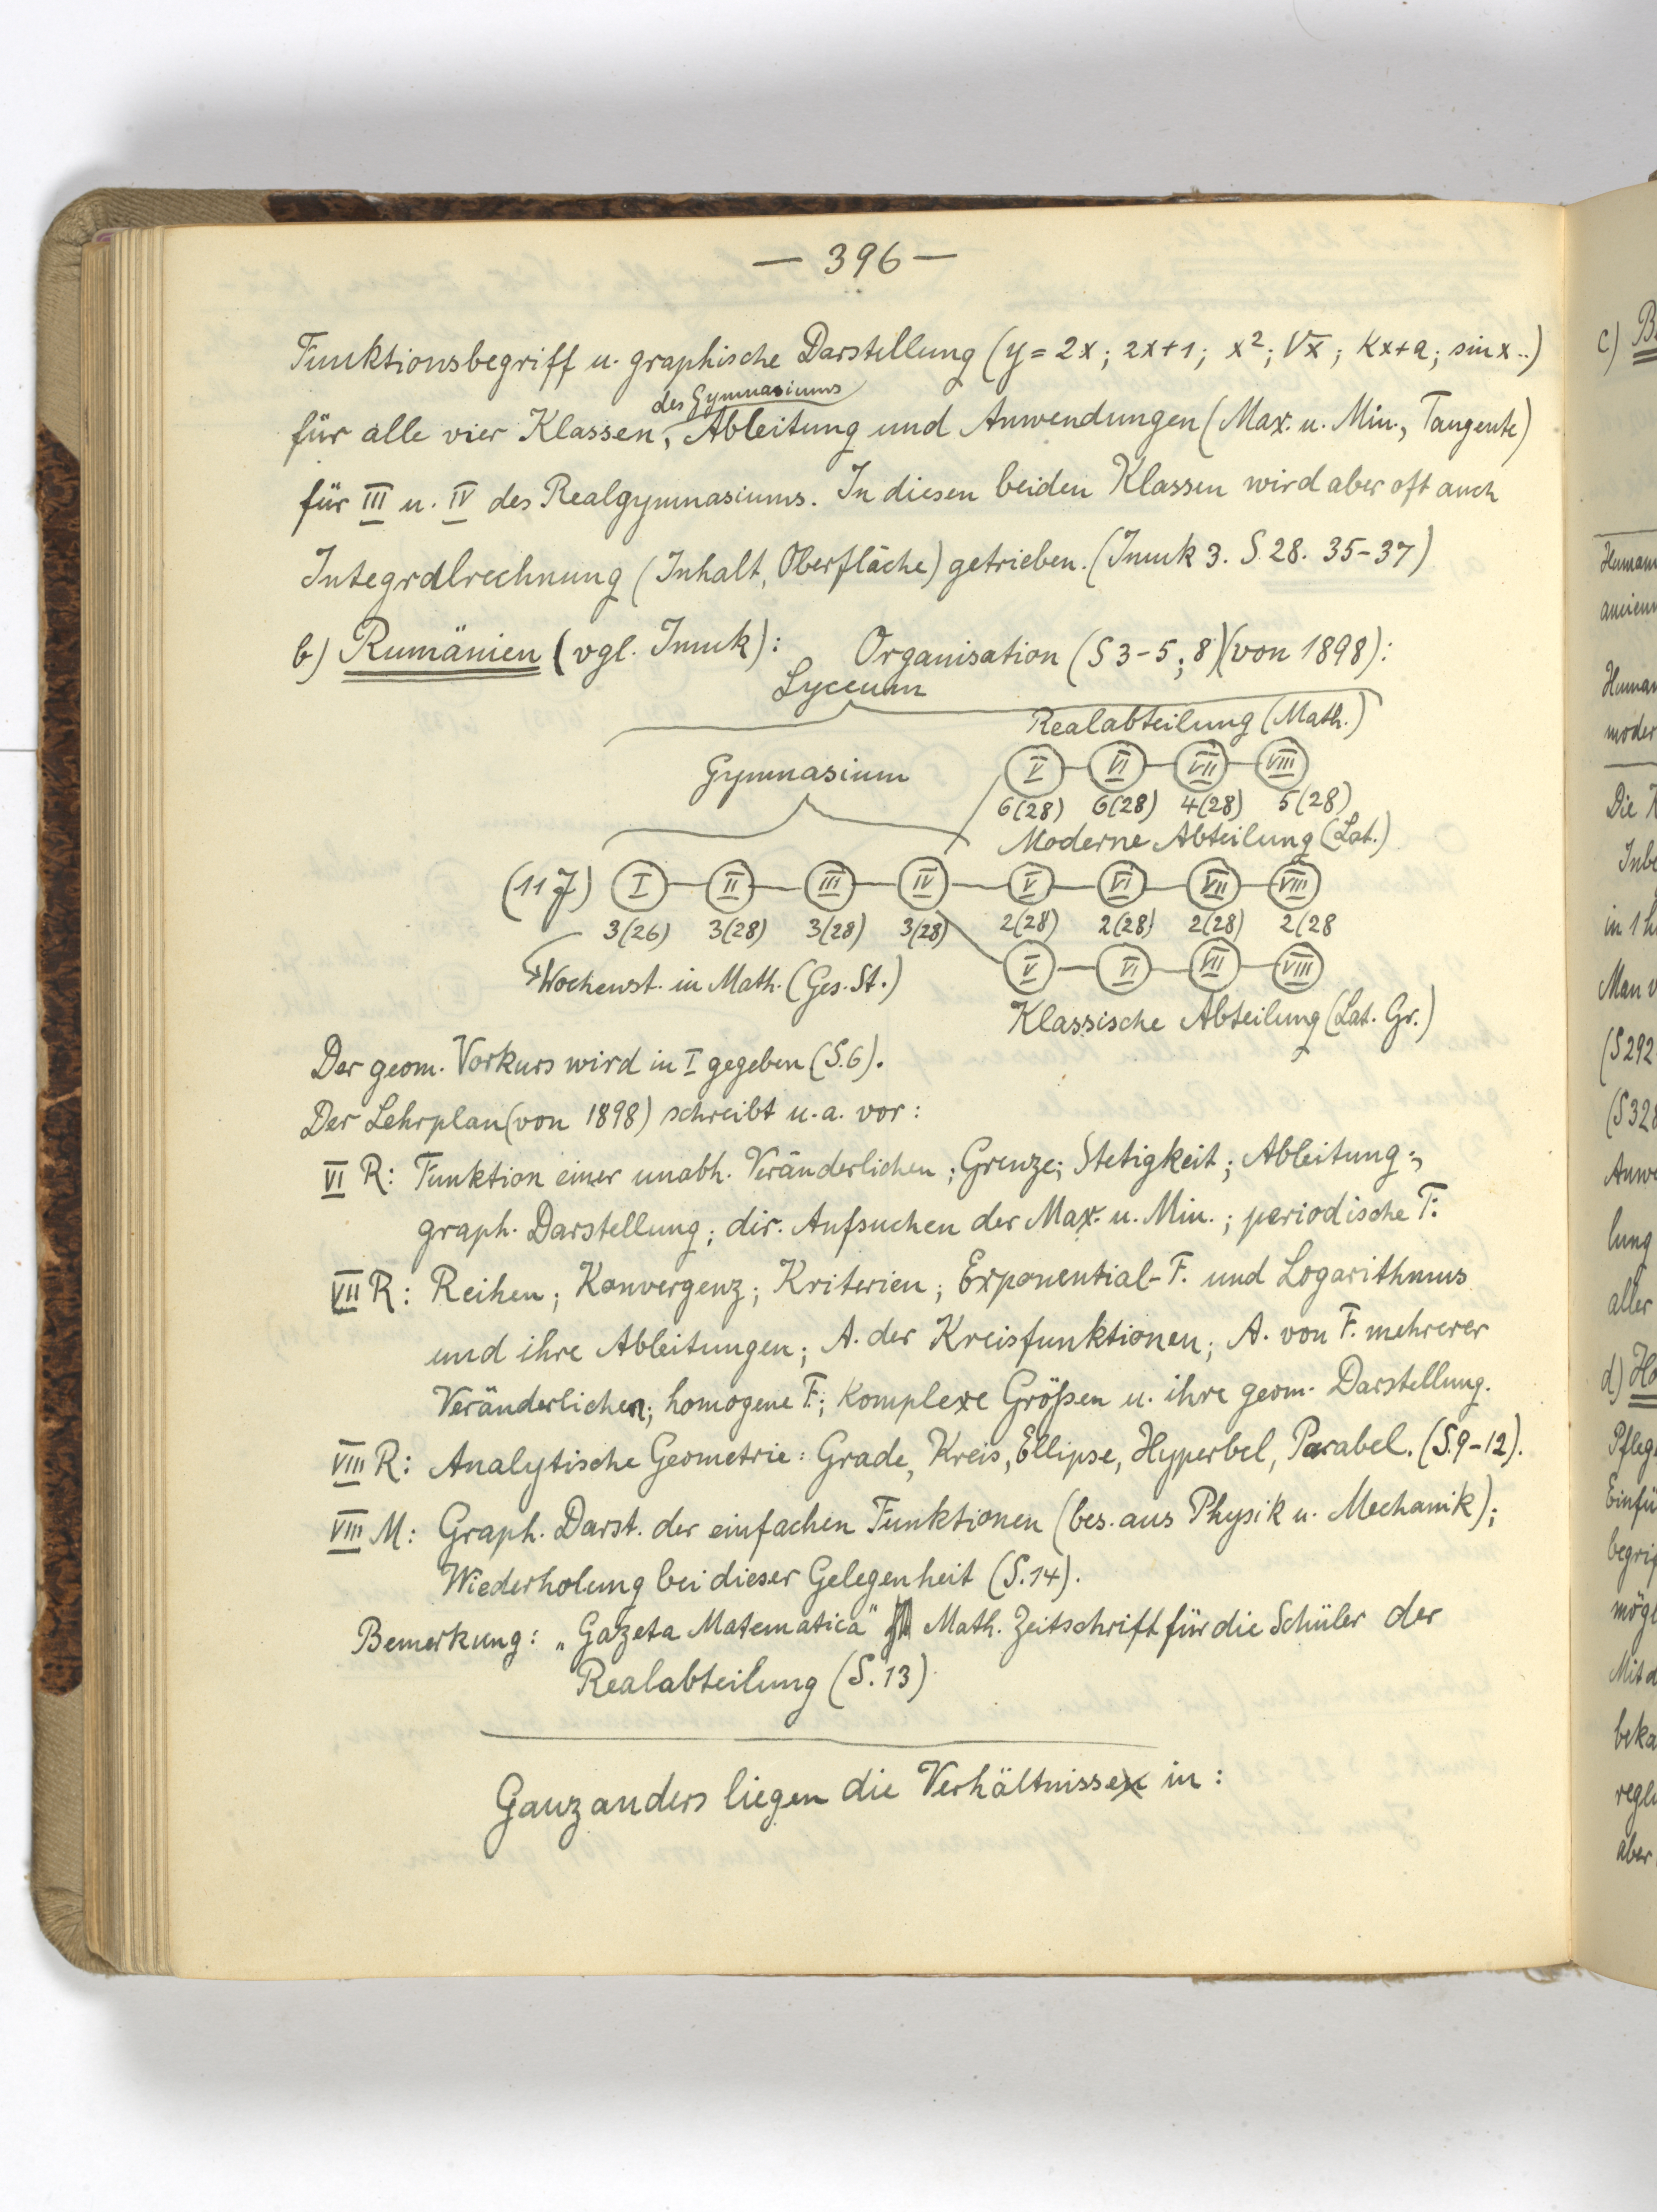 — 396 —
Funktionsbegriff u. graphische Darstellung (y = 2x; 2x+1; x²; √x; kx+a; sin x..)
des Gymnasiums
für alle vier Klassen, Ableitung und Anwendungen (Max. u. Min., Tangente)
für III u. IV des Realgymnasiums. In diesen beiden Klassen wird aber oft auch
Integralrechnung (Inhalt, Oberfläche) getrieben. (Imuk 3. S. 28. 35-37)
b) Rumänien (vgl. Imuk): Organisation (S 3-5; 8) (von 1898):
Lyceum
Realabteilung (Math.)
Gymnasium
V VI VII VIII
6(28) 6(28) 4(28) 5(28)
Moderne Abteilung (Lat.)
(11 J) I II III IV V VI VII VIII
3(26) 3(28) 3(28) 3(28) 2(28) 2(28) 2(28) 2(28
Wochenst. in Math. (Ges. St.)
V VI VII VIII
Klassische Abteilung (Lat. Gr.)
Der geom. Vorkurs wird in I gegeben (S. 6).
Der Lehrplan (von 1898) schreibt u. a. vor:
VI R: Funktion einer unabh. Veränderlichen; Grenze; Stetigkeit; Ableitung;
graph. Darstellung; dir. Aufsuchen der Max. u. Min.; periodische F.
VII R: Reihen; Konvergenz; Kriterien; Exponential-F. und Logarithmus
und ihre Ableitungen; A. der Kreisfunktionen; A. von F. mehrerer
Veränderlichen; homogene F.; Komplexe Größen u. ihre geom. Darstellung.
VIII R: Analytische Geometrie: Grade, Kreis, Ellipse, Hyperbel, Parabel. (S. 9-12).
VIII M: Graph. Darst. der einfachen Funktionen (bes. aus Physik u. Mechanik);
Wiederholung bei dieser Gelegenheit (S. 14).
Bemerkung: „Gazeta Matematica" Math. Zeitschrift für die Schüler der
Realabteilung (S. 13)
Ganz anders liegen die Verhältnisse in:
c)
d)
in 1
Man
(S 292
(S 328
lung
aller
Mit
aber